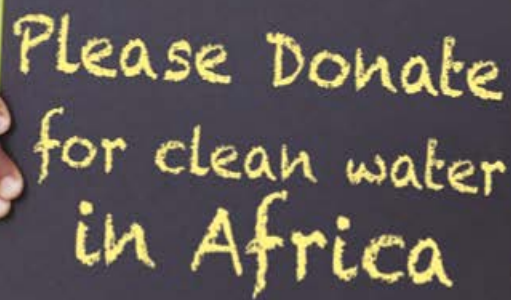 Please Donate
for clean water
in Africa